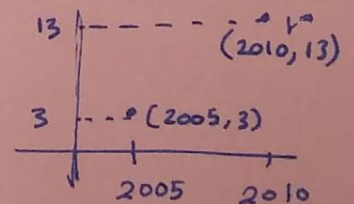 13
(2010, 13)
3 (2005, 3)
2005 2010